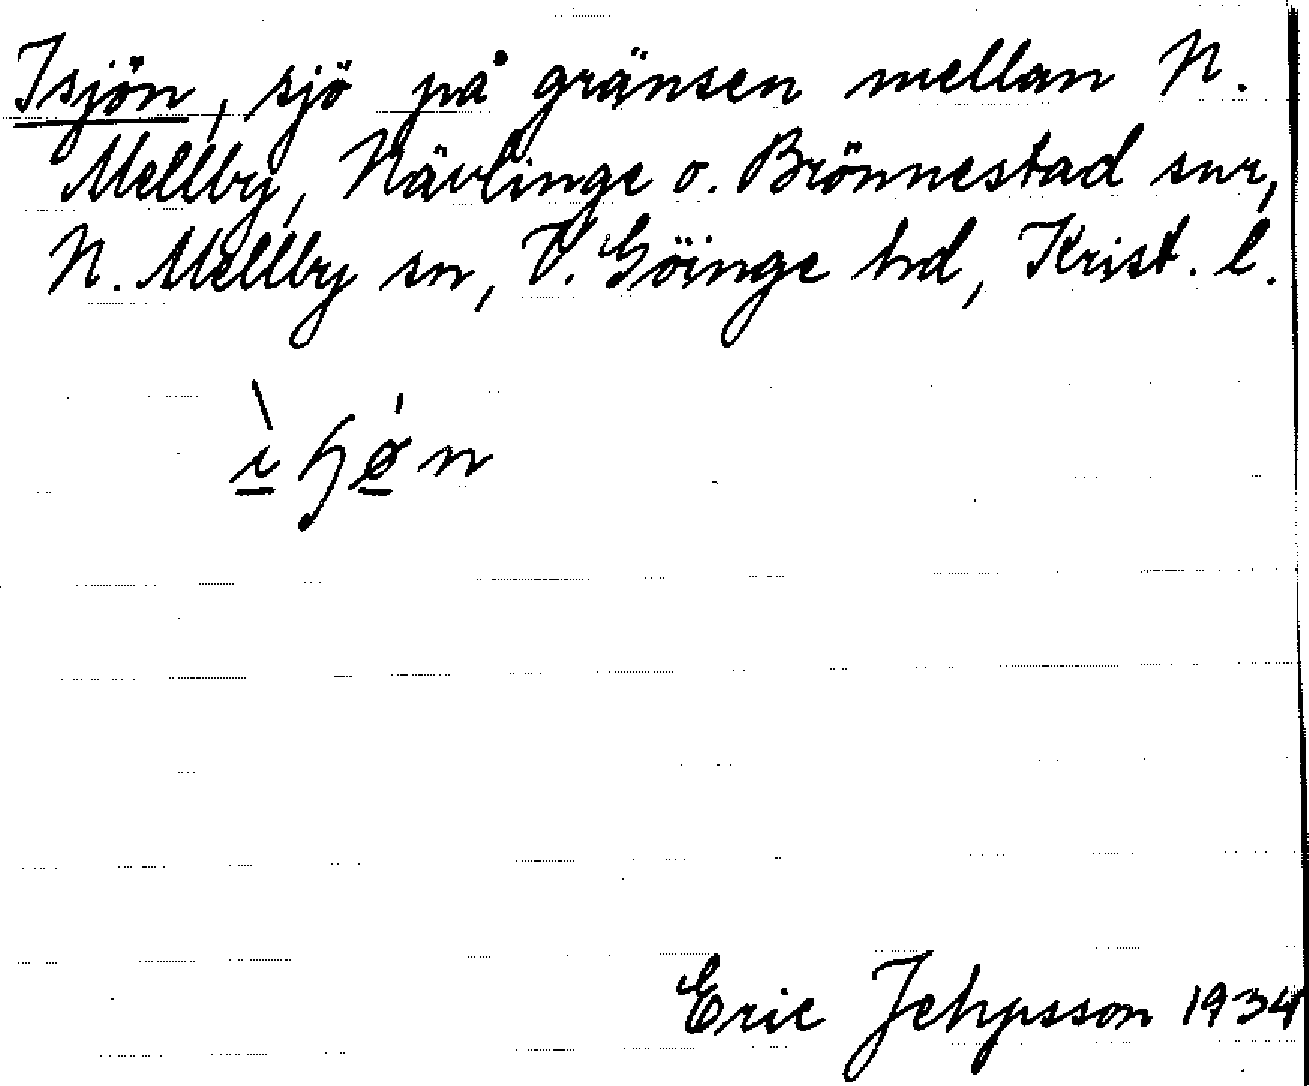 Isjön, sjö på gränsen mellan N.
Mellby, Nävlinge o. Brönnestad snr,
N. Mellby sn, V. Göinge hd, Krist. l.
Eric Jehpsson 1934